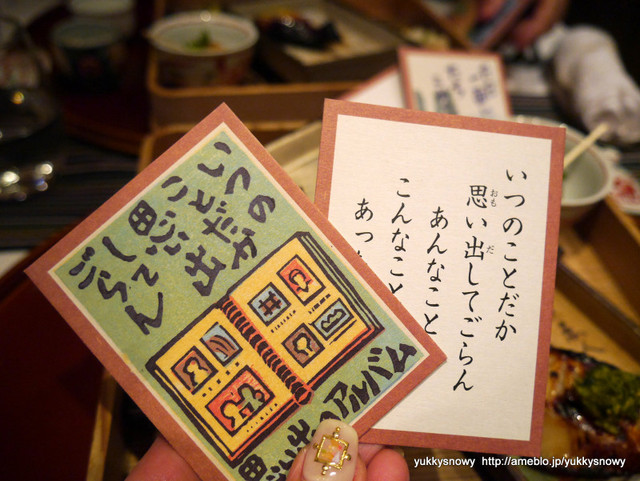 いつの
ことだか
思い出
して
ごらん
思い出のアルバム
いつのことだか
思い出してごらん
おも
だ
あんなこと
こんなこと
あっ
yukkysnowy http://ameblo.jp/yukkysnowy